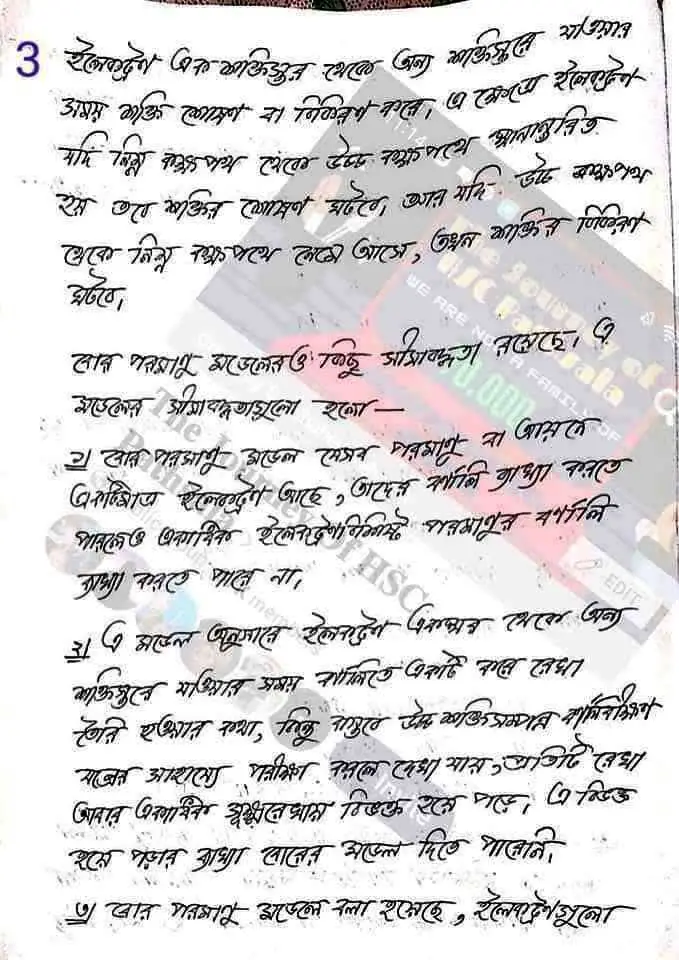 3
ইলেকট্রণ এক শক্তিস্তর থেকে অন্য শক্তিস্তরে যাওয়ার
সময় শক্তি শোষণ বা বিকিরণ করে। এ ক্ষেত্রে ইলেকট্রণ
যদি নিম্ন কক্ষপথ থেকে উচ্চ কক্ষপথে স্থানান্তরিত
হয় তবে শক্তির শোষণ ঘটবে। আর যদি উচ্চ কক্ষপথ
থেকে নিম্ন কক্ষপথে নেমে আসে, তখন শক্তির বিকিরণ
ঘটবে।
বোর পরমাণু মডেলেরও কিছু সীমাবদ্ধতা রয়েছে। এ
মডেলের সীমাবদ্ধতাগুলো হলো —
১) বোর পরমাণু মডেল যেসব পরমাণু বা আয়নে
একটিমাত্র ইলেকট্রণ আছে, তাদের বর্ণালি ব্যাখ্যা করতে
পারলেও একাধিক ইলেকট্রণবিশিষ্ট পরমাণুর বর্ণালি
ব্যাখ্যা করতে পারে না।
২) এ মডেল অনুসারে ইলেকট্রণ একস্তর থেকে অন্য
শক্তিস্তরে যাওয়ার সময় বর্ণালিতে একটি করে রেখা
তৈরি হওয়ার কথা, কিন্তু বাস্তবে উচ্চ শক্তিসম্পন্ন বর্ণালিবীক্ষণ
যন্ত্রের সাহায্যে পরীক্ষা করলে দেখা যায়, প্রতিটি রেখা
আবার একাধিক সূক্ষ্মরেখায় বিভক্ত হয়ে পড়ে। এ বিভক্ত
হয়ে পড়ার ব্যাখ্যা বোরের মডেল দিতে পারেনি।
৩) বোর পরমাণু মডেলে বলা হয়েছে, ইলেকট্রণগুলো
The Journey of HSC
Pathshala
WE ARE NOW A FAMILY OF
0,000
EDIT
The Journey of HSC
Pathshala
members
Invite